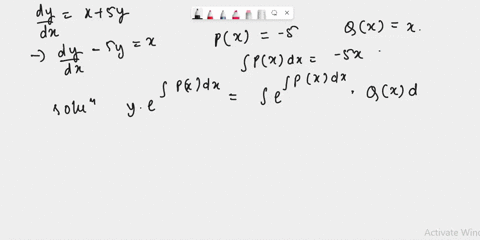 dy/dx = x+5y
P(x) = -5
Q(x) = x.
→) dy/dx - 5y = x
∫ P(x) dx = -5x .
solun y.e^∫ P(x) dx = ∫ e^∫ P(x) dx . Q(x) d
Activate Wind